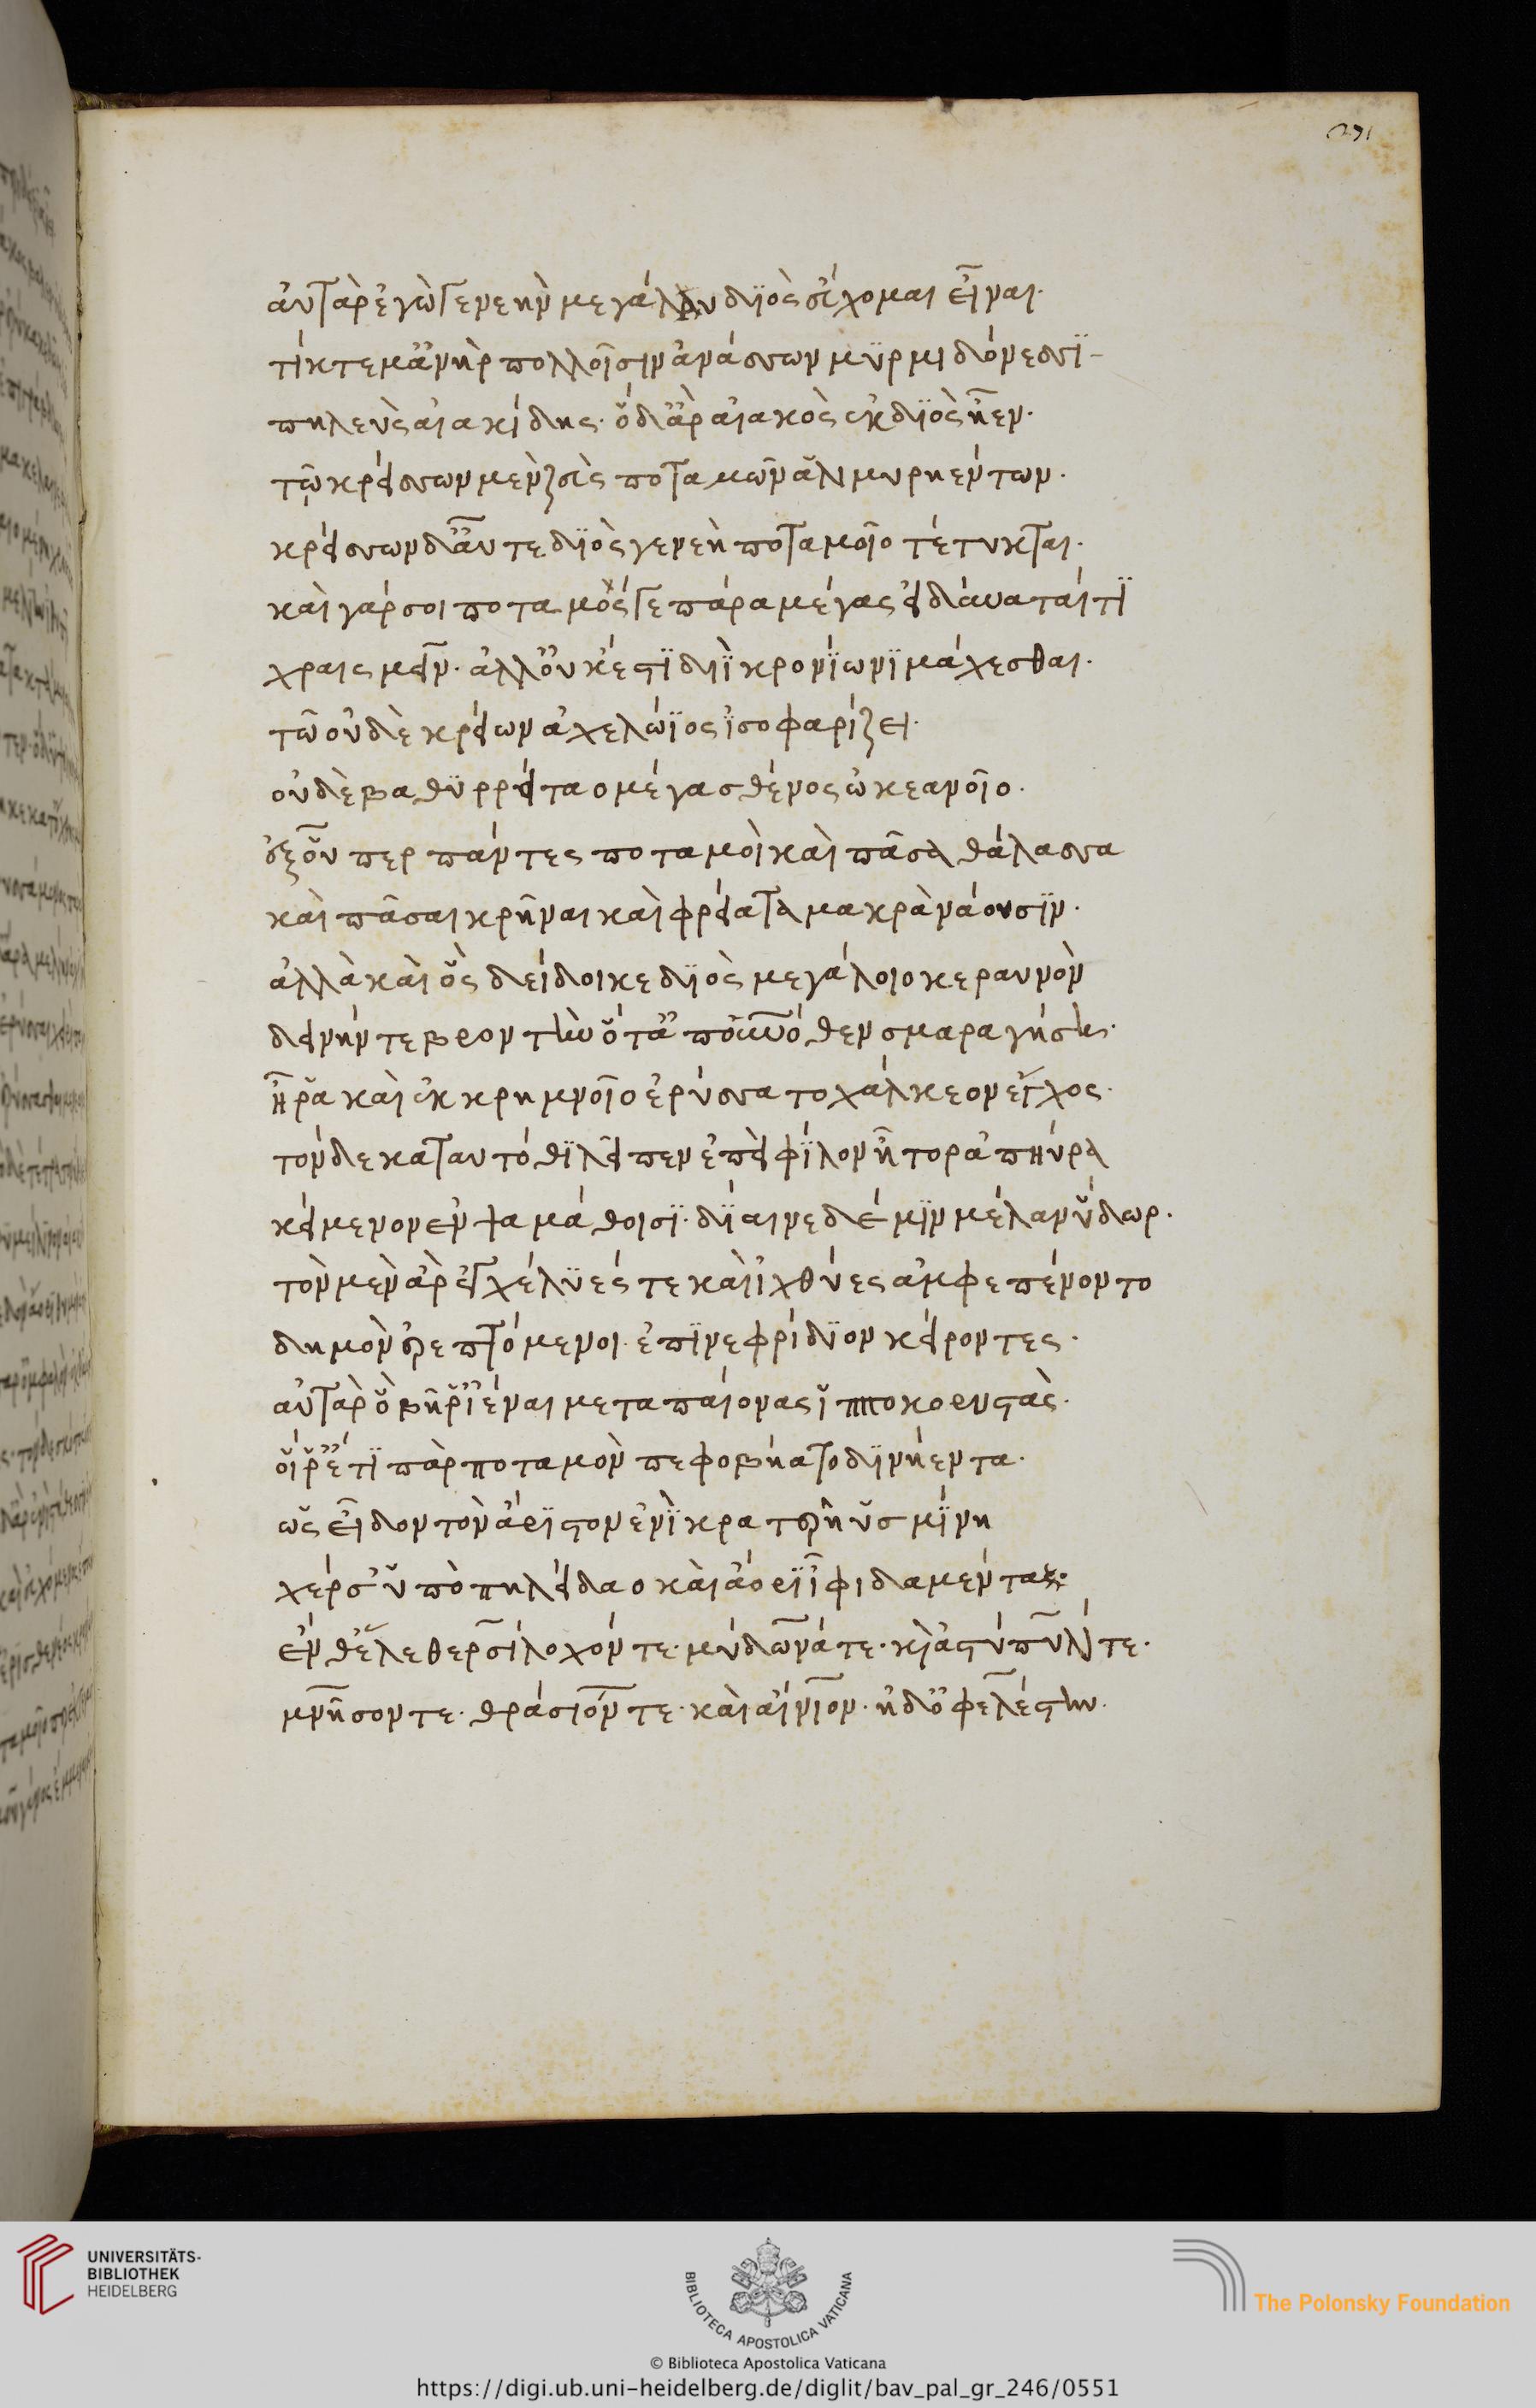 271
ἀυτὰρ ἐγὼ γενεὴν μεγάλου διὸς ἔυχομαι εἶναι.
τίκτε μ' ἀνὴρ πολλοῖσιν ἀνάσσων μυρμιδόνεσσι
πηλεὺς αἰακίδης. ὁ δ' ἂρ αἰακὸς ἐκ διὸς ἦεν.
τῷ κρείσσων μὲν ζεὺς ποταμῶν ἁλιμυρηέντων.
κρείσσων δ' ἆυτε διὸς γενεὴ ποταμοῖο τέτυκται.
καὶ γάρ σοι ποταμός γε πάρα μέγας ἐι δύναταί τι
χραισμεῖν. ἀλλ' ὀυκ ἔστι διῒ κρονίωνι μάχεσθαι.
τῶ οὐδὲ κρείων ἀχελώϊος ἰσοφαρίζει.
οὐδὲ βαθυρρείταο μέγα σθένος ὠκεανοῖο.
ἐξ οὗ περ πάντες ποταμοὶ καὶ πᾶσα θάλασσα
καὶ πᾶσαι κρῆναι καὶ φρείατα μακρὰ νάουσιν.
ἀλλὰ καὶ ὃς δείδοικε διὸς μεγάλοιο κεραυνὸν
δεινήν τε βροντὴν ὅτ' ἀπ' ὀυρανόθεν σμαραγήση.
ἦ ῥα καὶ ἐκ κρημνοῖο ἐρύσσατο χάλκεον ἔγχος.
τὸν δὲ κατ' αυτόθι λεῖπεν ἐπεὶ φίλον ἦτορ ἀπηύρα
κείμενον ἐν ψαμάθοισι. δίαινε δέ μιν μέλαν ὕδωρ.
τὸν μὲν ἂρ ἐγχέλυές τε καὶ ἰχθύες ἀμφεπένοντο
δημὸν ἐρεπτόμενοι ἐπινεφρίδιον κείροντες.
αὐτὰρ ὁ βῆ ῥ' ἰέναι μετα παίονας ἱπποκορυστὰς.
οἵ ῥ' ἔτι πὰρ ποταμὸν πεφοβήατο δινήεντα.
ὡς εἶδον τὸν ἄριστον ἐνὶ κρατερῆ ὑσμίνη
χέρσ' ὑπὸ πηλείδαο καὶ ἄορι ἶφι δαμέντα.
ἔνθ' ἕλε θερσίλοχόν τε. μύδωνά τε. κὶ ἀστύπυλόν τε.
μνῆσον τε. θράσιόν τε. καὶ αἴνιον. ἠδ' ὀφελέστην.
UNIVERSITÄTS-
BIBLIOTHEK
HEIDELBERG
BIBLIOTECA APOSTOLICA VATICANA
The Polonsky Foundation
© Biblioteca Apostolica Vaticana
https://digi.ub.uni-heidelberg.de/diglit/bav_pal_gr_246/0551